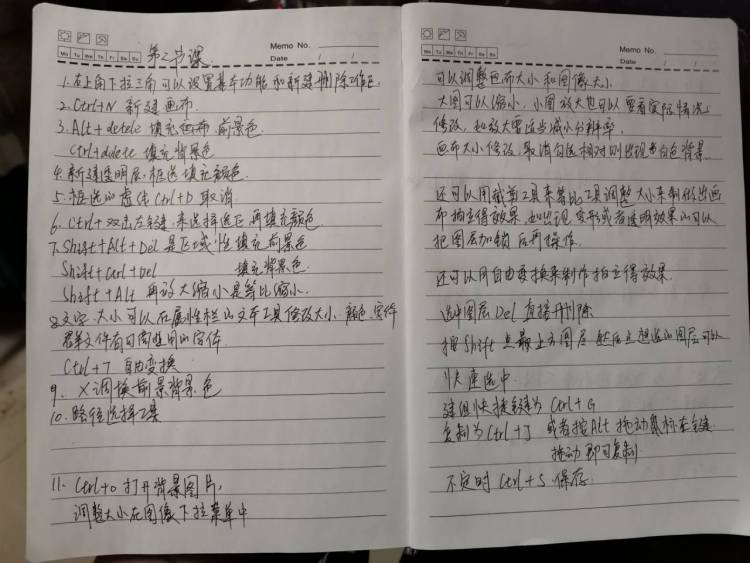 Memo No.
Mo Tu We Th Fr Sa Su
Date / /
第二节课
1. 右上角下拉三角可以设置基本功能和新建删除工作区
2. Ctrl+N 新建画布
3. Alt+detele 填充画布 前景色
Ctrl+dulete 填充背景色
4. 新建透明层, 框选填充颜色
5. 框选的虚线 Ctrl+D 取消
6. Ctrl+双击左键 来选择选区再填充颜色
7. Shift+Alt+Del 是区域性填充前景色
Shift+Ctrl+Del 填充背景色.
Shift+Alt 再放大缩小是等比缩小.
8. 文字、大小可以在属性栏的文本工具修改大小、颜色、字体
群文件有可商业用的字体
Ctrl+T 自由变换
9. X调换前景背景色
10. 路径选择工具
11. Ctrl+o 打开背景图片,
调整大小在图像下拉菜单中
Memo No.
Mo Tu We Th Fr Sa Su
Date / /
可以调整画布大小和图像大小
大图可以缩小, 小图放大也可以要看实际情况
修改, 如放大要适当减小分辨率.
画布大小修改, 取消勾选相对则出现白色背景.
还可以用裁剪工具来等比工具调整大小来制作出画
布拍立得效果, 如出现变形或者透明效果的可以
把图层加锁后再操作.
还可以用自由变换来制作拍立得效果.
选中图层 Del 直接删除
按 Shift 点最上方图层 然后点想选的图层可以
快速选中
建组快捷键为 Ctrl+G
复制为 Ctrl+J 或者按 Alt 拖动鼠标左键
拖动即可复制
不定时 Ctrl+S 保存